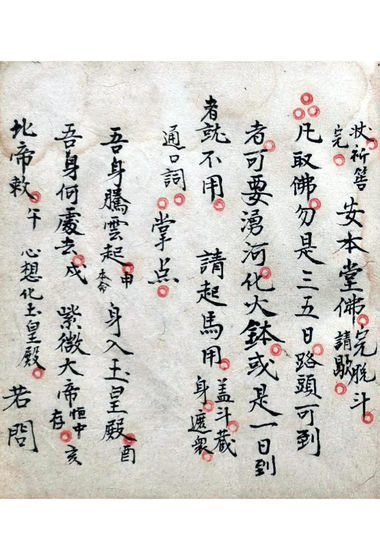 妆祈筶完 安本堂佛 完脫斗請歇
凡取佛勿是三五日路頭可到
者可要湧河化火鉢或是一日到
者就不用 請起馬用 盖斗藏身遮衆
通口詞 掌点
吾身騰雲起 申本命 身入玉皇殿 酉
吾身何處去 戌 紫微大帝恒中存 亥
北帝敕 午 心想化玉皇殿 若問